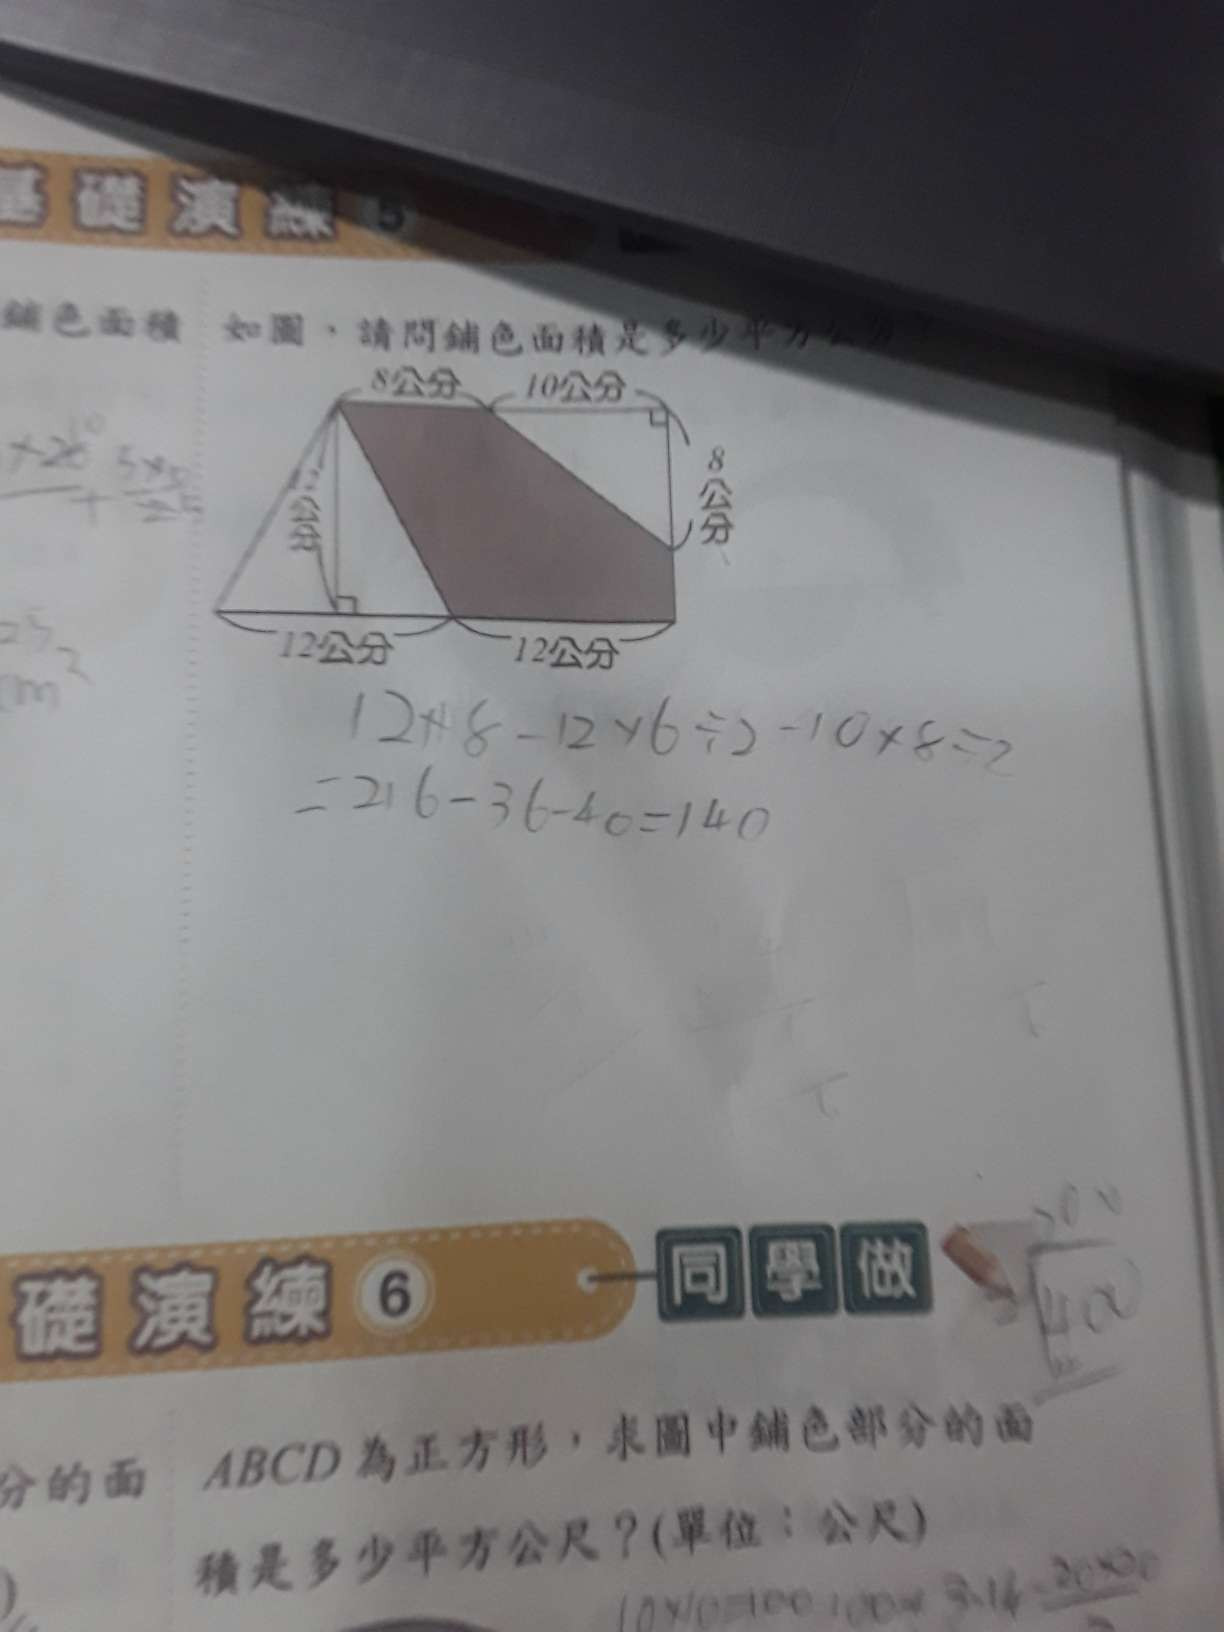 基礎演練 5
鋪色面積
如圖，請問鋪色面積是多少平方公分？
8公分
10公分
12公分
8公分
12公分
12公分
12×18-12×6÷2-10×8÷2
=216-36-40=140
礎演練 6
同學做
分的面
ABCD為正方形，求圖中鋪色部分的面
積是多少平方公尺？(單位：公尺)